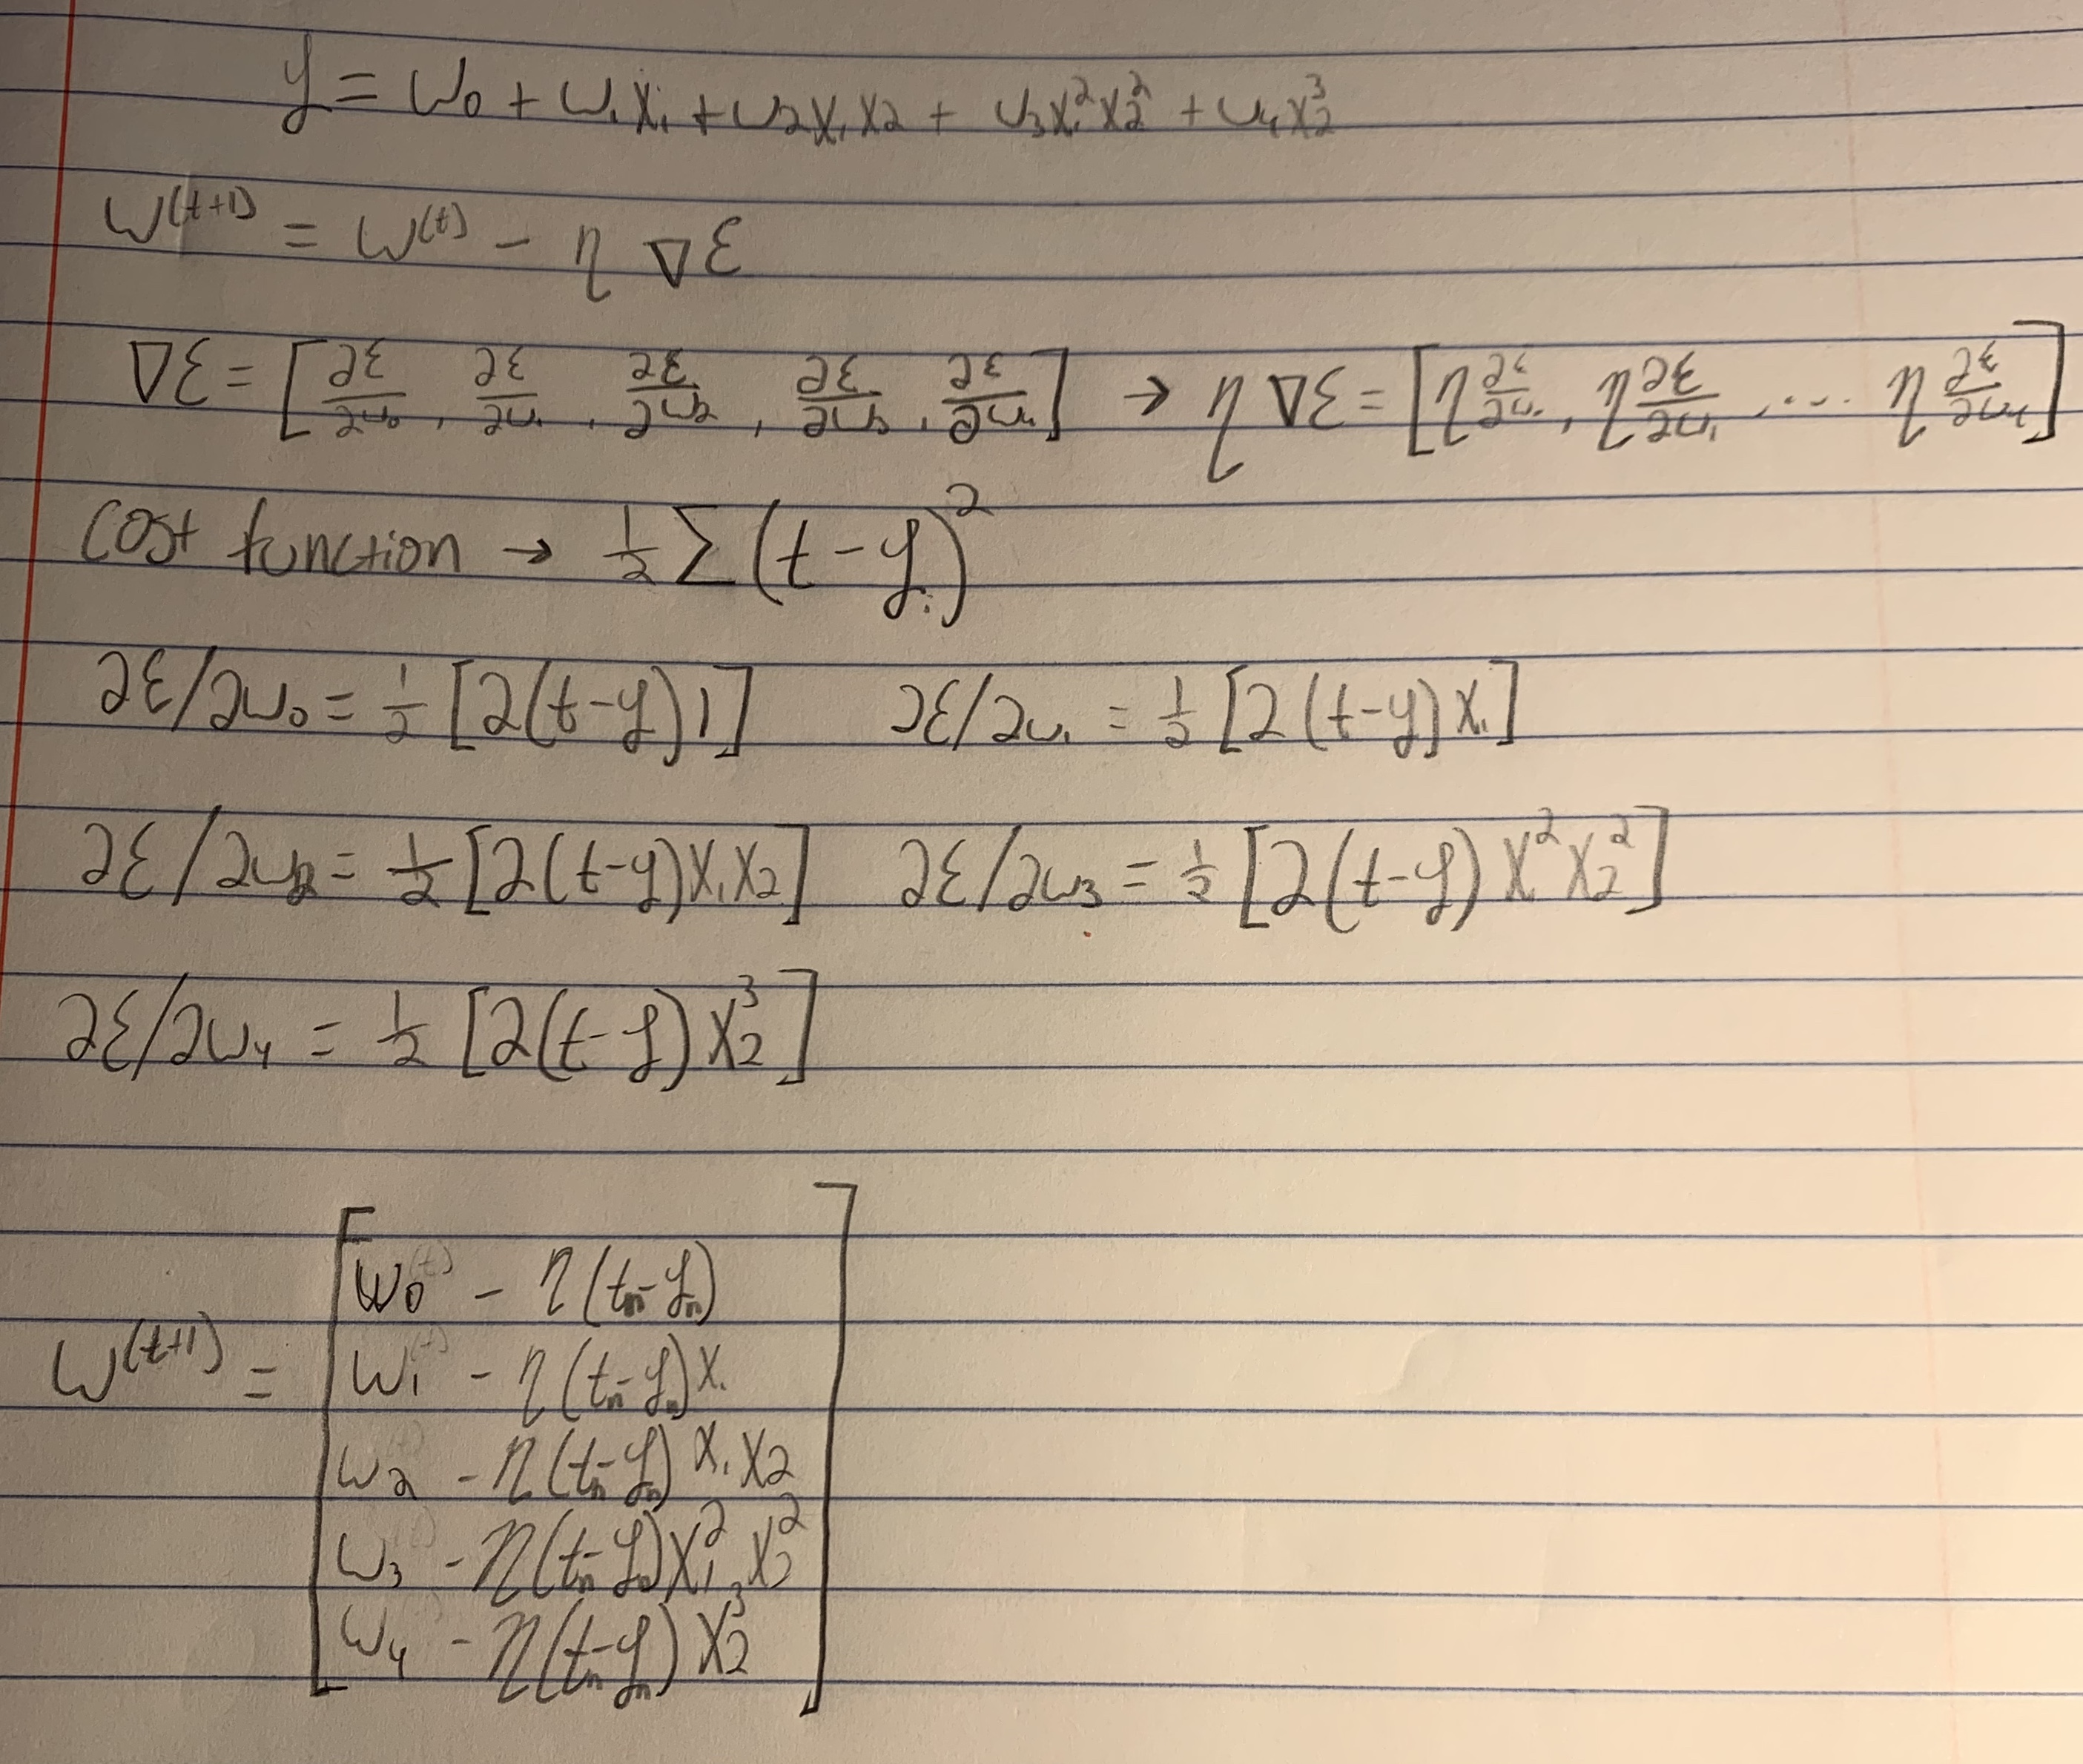 y = w₀ + w₁x₁ + w₂x₁x₂ + w₃x₁²x₂² + w₄x₂³
w⁽ᵗ⁺¹⁾ = w⁽ᵗ⁾ - η ∇ε
∇ε = [∂ε/∂w₀, ∂ε/∂w₁, ∂ε/∂w₂, ∂ε/∂w₃, ∂ε/∂w₄] → η ∇ε = [η ∂ε/∂w₀, η ∂ε/∂w₁, ... η ∂ε/∂w₄]
Cost function → ½ Σ (t - yᵢ)²
∂ε/∂w₀ = ½ [2(t-y)1] ∂ε/∂w₁ = ½ [2(t-y)x₁]
∂ε/∂w₂ = ½ [2(t-y)x₁x₂] ∂ε/∂w₃ = ½ [2(t-y)x²x₂²]
∂ε/∂w₄ = ½ [2(t-y)x₂³]
w₀⁽ᵗ⁾ - η(tₙ-yₙ)
w⁽ᵗ⁺¹⁾ = w₁⁽ᵗ⁾ - η(tₙ-yₙ)x₁
w₂⁽ᵗ⁾ - η(tₙ-yₙ)x₁x₂
w₃⁽ᵗ⁾ - η(tₙ-yₙ)x₁²x₂²
w₄ - η(tₙ-yₙ)x₂³